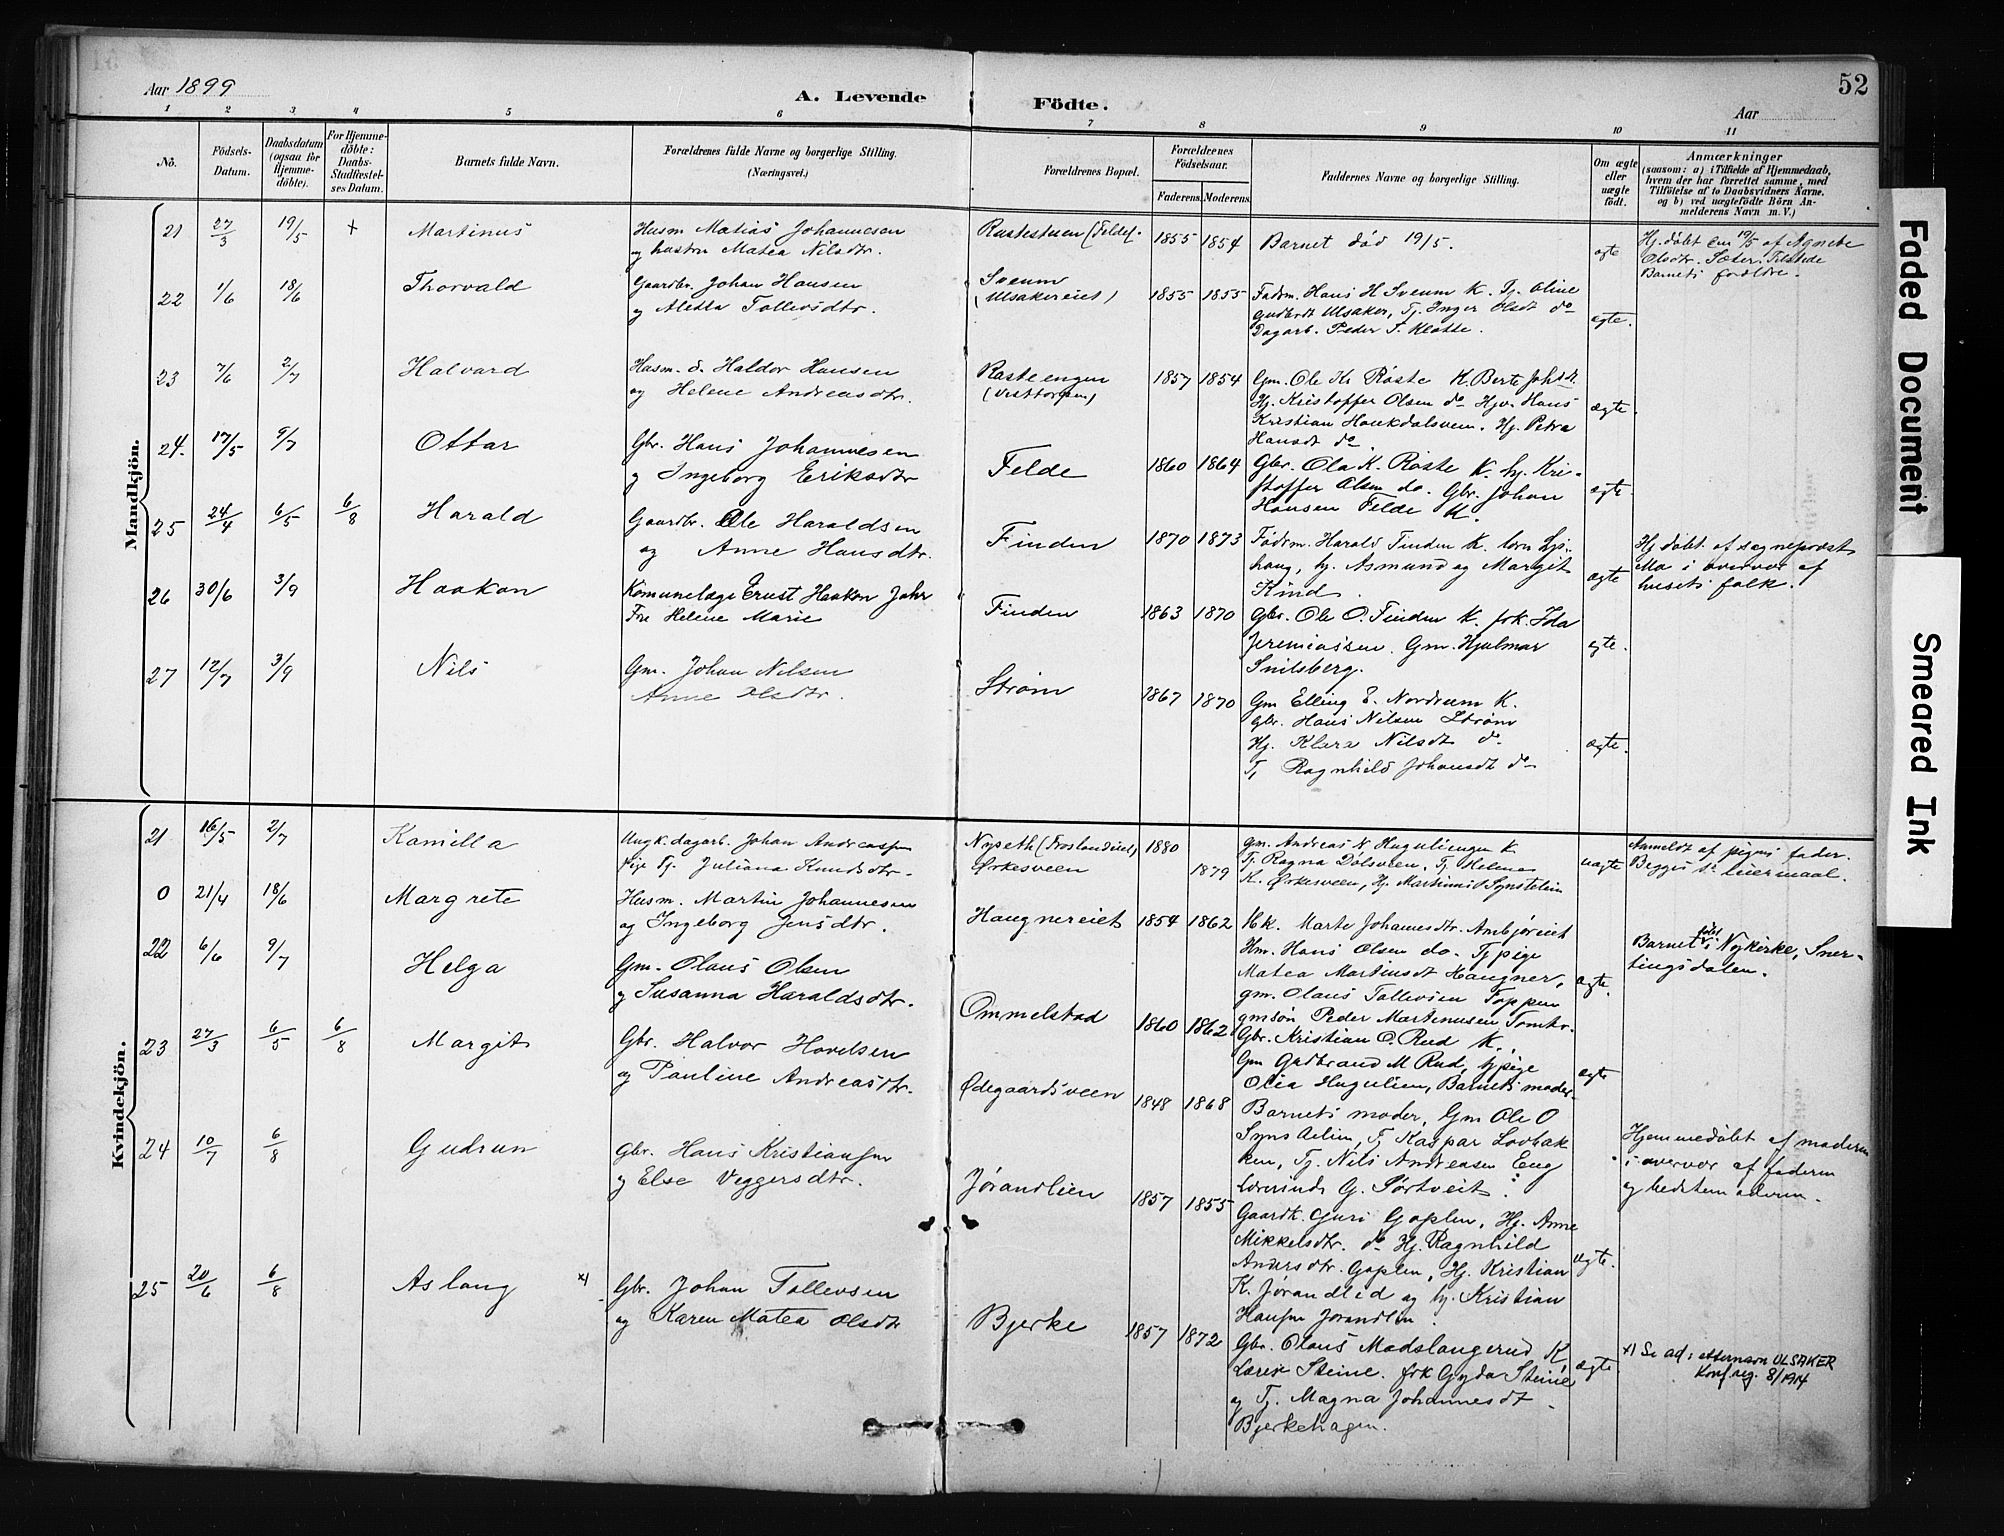 52
Aar 1899
A. Levende Födte.
Aar
1 2 3 4 5 6 7 8 9 10 11
No.
Födsels-Datum.
Daabsdatum (ogsaa för Hjemme-döbte).
For Hjemme-döbte: Daabs-Stadfæstel-ses Datum.
Barnets fulde Navn.
Forældrenes fulde Navne og borgerlige Stilling. (Næringsvei.)
Forældrenes Bopæl.
Forældrenes Födselsaar.
Faderens. Moderens.
Faddernes Navne og borgerlige Stilling.
Om ægte eller uægte födt.
Anmærkninger
(saasom: a) i Tilfælde af Hjemmedaab,
hvem der har forrettet samme, med
Tilföielse af to Daabsvidners Navne.
og b) ved uægtefödte Börn An-
melderens Navn m. V.)
Mandkjön.
21 27/3 19/5 + Martinus
Husm Matias Johannesen
og hustru Matea Nilsdtr.
1855 1854 Barnet død 19/5.
ægte
Hj. døbt den 19/5 af Agnete
Olsdtr. Sæter. Tilstede
Barnets forældre.
22 1/6 18/6 Thorvald
Gaardbr. Johan Hansen
og Aletta Tollevsdtr.
Sveum
(Ulsakereiet)
1855 1855 Fadm. Hans H Sveum K. Tj. Oline
Gudbrdt Ulsaker, Tj. Inger Olsdt do
Dagarb. Peder T. Kløtte.
ægte.
23 7/6 2/7 Halvard
Husm. d. Haldor Hansen
og Helene Andreasdtr.
Rasteengen
(Vesttorpen)
1857 1854 Gm. Ole Kr Røste K. Berte Johsdt.
Hj. Kristoffer Olsen do Hjv. Hans
Kristian Haukdalsveen. Hj. Petra
Hansdt do
ægte.
24. 17/5 9/7 Ottar
Gbr. Hans Johannesen
og Ingeborg Eriksdtr
Felde
1860 1864 Gbr. Ola K. Røste K. hj. Kri-
stoffer Olsen do. Gbr. Johan
Hansen Felde K.
ægte.
25 24/4 6/5 6/8 Harald
Gaardbr. Ole Haraldsen
og Anne Hansdtr.
Finden
1870 1873 Fødrm. Harald Finden K.
haug, hj. Asmund og Margit
Kind.
ægte
Hj døbt af sogneprest
Mo i overvær af
husets folk.
26 30/6 3/9 Haakon
Komunelæge Ernst Haakon Jahr
Fru Helene Marie
Finden
1863 1870 Gbr. Ole O. Finden K. frk. Ida
Jeremiassen. Gm. Hjalmar
Snilsberg.
ægte.
27 12/7 3/9 Nils
Gm. Johan Nilsen
Anne Olsdtr.
Strøm
1867 1870 Gm Elling E. Nordrum K.
gbr. Hans Nilsen Strøm
Hj. Klara Nilsdt do
Tj Ragnhild Johansdt do
ægte.
Kvindekjön.
21 16/5 2/7 Kamilla
Ungk. dagarb. Johan Andreassen
pige Tj. Juliana Knudsdtr.
Nyseth (Froslandeiet)
Ørkesveen
1880 1879
gm. Andreas N Haguliengen K
Tj. Ragna Dølsveen, Tj. Helene
K. Ørkesveen, Hj. Martinus Synstelien
uægte
Anmeldt af pigens fader.
Begges 1ste leiermaal.
0 21/4 18/6 Margrete
Husm. Martin Johannesen
og Ingeborg Jensdtr.
Haugnereiet
1854 1862 Kk. Marte Johannesdtr. Ambjøreiet
Hm. Hans Olsen do. Tj pige
Matea Martinsdt Haugner,
gm. Olaus Tollevsen Toppen
gmsøn Peder Martinusen Tomtr.
ægte.
Barnet født i Nykirke, Sner-
tingsdalen.
22 6/6 9/7 Helga
Gm. Olaus Olsen
og Susanna Haraldsdtr.
Ommelstad
1860 1862 Gbr. Kristian O. Rud K.
Gm Gudbrand M Rud, hjpige
Olea Hagulien, Barnets moder.
ægte
23 27/3 6/5 6/8 Margit
Gbr. Halvor Hovelsen
og Pauline Andreasdtr.
Ødegaardsveen
1848 1868 Barnets moder, Gm Ole O
Synstelien, Tj Kaspar Lovbak
ken, Tj. Nils Andreasen Eng
Lærerinde G. Sørtveit.
Hjemmedøbt af moderen
i overvær af faderen
og bedstemoderen.
24 10/7 6/8 Gudrun
Gbr. Hans Kristiansen
og Else Veggersdtr.
Jørandlien
1857 1855 Gaardk. Guri Goplen, Hj. Anne
Mikkelsdtr. do Hj. Ragnhild
Andersdtr. Goplen, Hj. Kristian
K. Jørandlid og hj. Kristian
Hansen Jørandlien.
ægte.
25 20/6 6/8 Aslaug x)
Gbr. Johan Tollevsen
og Karen Matea Olsdtr
Bjerke
1857 1872 Gbr. Olaus Madslangerud K,
Lærer Steine. frk Gyda Steine
og Tj. Magna Johannesdt
Bjerkehagen.
ægte
x) Se ad: etternavn OLSAKER
Konf.reg. 8/1914
Faded Document
Smeared Ink